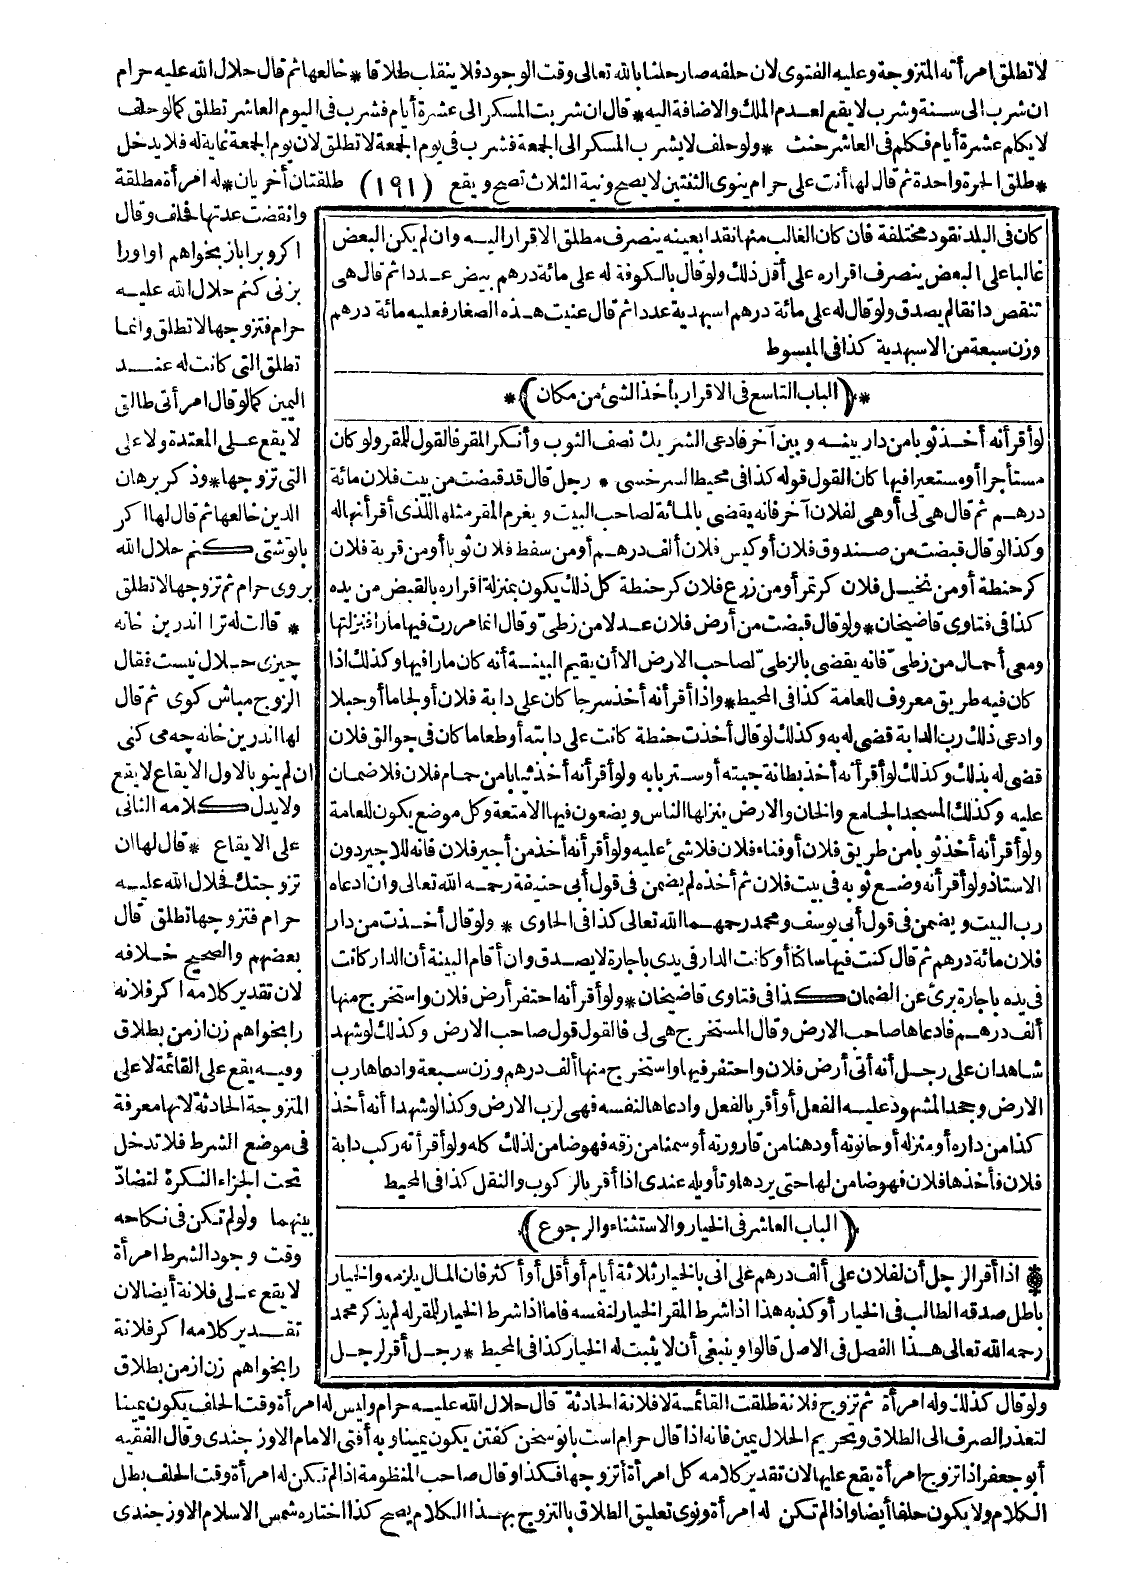 لا تطلق امرأته المتزوجة وعليه الفتوى لان حلفه صار حلفا بالله تعالى وقت الوجود فلا ينقلب طلاقا * خالعها ثم قال حلال الله عليه حرام
ان شرب الى سنة وشرب لا يقع لعدم الملك والاضافة اليه * قال ان شربت المسكر الى عشرة أيام فشرب فى اليوم العاشر تطلق كما لو حلف
لا يكلم عشرة أيام فكلم فى العاشر حنث * ولو حلف لا يشرب المسكر الى الجمعة فشرب فى يوم الجمعة لا تطلق لان يوم الجمعة غاية له فلا يدخل
* طلق الحرة واحدة ثم قال لها أنت على حرام ينوى الثنتين لا يصح ونية الثلاث تصح ويقع (١٩١) طلقتان أخريان * له امرأة مطلقة
وانقضت عدتها فحلف وقال
اكرو براباز بخواهم او اورا
بزنى كنم حلال الله عليه
حرام فتزوجها لا تطلق وانما
تطلق التى كانت له عند
اليمين كما لو قال امرأتى طالق
لا يقع على المعتدة ولا على
التى تزوجها * وذكر برهان
الدين خالعها ثم قال لها اكر
باتوشتى كنم حلال الله
بروى حرام ثم تزوجها لا تطلق
* قالت له ترا اندرين خانه
چيزى حلال نيست فقال
الزوج مباش كوى ثم قال
لها اندرين خانه چه مى كنى
ان لم ينو بالاول الايقاع لا يقع
ولا يدل كلامه الثانى
على الايقاع * قال لها ان
تزوجتك فحلال الله عليه
حرام فتزوجها تطلق قال
بعضهم والصحيح خلافه
لان تقدير كلامه اكر فلانه
را بخواهم زن از من بطلاق
وفيه يقع على القائمة لا على
المتزوجة الحادثة لانها معرفة
فى موضع الشرط فلا تدخل
تحت الجزاء النكرة لتضاد
بينهما ولو لم تكن فى نكاحه
وقت وجود الشرط امرأة
لا يقع على فلانة أيضا لان
تقدير كلامه اكر فلانة
را بخواهم زن از من بطلاق
كان فى البلد نقود مختلفة فان كان الغالب منها نقدا بعينه ينصرف مطلق الاقرار اليه وان لم يكن البعض
غالبا على البعض ينصرف اقراره على أقل ذلك ولو قال بالكوفة له على مائة درهم بيض عددا ثم قال هى
تنقص دانقا لم يصدق ولو قال له على مائة درهم اسبهدية عددا ثم قال عنيت هذه الصغار فعليه مائة درهم
وزن سبعة من الاسبهدية كذا فى المبسوط
* (الباب التاسع فى الاقرار بأخذ الشئ من مكان) *
لو أقر أنه أخذ ثوبا من دار بينه وبين آخر فادعى الشريك نصف الثوب وأنكر المقر فالقول للمقر ولو كان
مستأجرا أو مستعيرا فيها كان القول قوله كذا فى محيط السرخسى * رجل قال قد قبضت من بيت فلان مائة
درهم ثم قال هى لى أو هى لفلان آخر فانه يقضى بالمائة لصاحب البيت ويغرم المقر مثلها للذى أقر أنها له
وكذا لو قال قبضت من صندوق فلان أو كيس فلان ألف درهم أو من سفط فلان ثوبا أو من قرية فلان
كر حنطة أو من نخيل فلان كر تمر أو من زرع فلان كر حنطة كل ذلك يكون بمنزلة اقراره بالقبض من يده
كذا فى فتاوى قاضيخان * ولو قال قبضت من أرض فلان عدلا من زطى وقال انما مررت فيها مارا فنزلتها
ومعى أحمال من زطى فانه يقضى بالزطى لصاحب الارض الا أن يقيم البينة أنه كان مارا فيها وكذلك اذا
كان فيه طريق معروف للعامة كذا فى المحيط * واذا أقر أنه أخذ سرجا كان على دابة فلان أو لجاما أو حبلا
وادعى ذلك رب الدابة قضى له به وكذلك لو قال أخذت حنطة كانت على دابته أو طعاما كان فى جوالق فلان
قضى له بذلك وكذلك لو أقر أنه أخذ بطانة جبته أو ستر بابه ولو أقر أنه أخذ ثيابا من حمام فلان فلا ضمان
عليه وكذلك المسجد الجامع والخان والارض ينزلها الناس ويضعون فيها الامتعة وكل موضع يكون للعامة
ولو أقر أنه أخذ ثوبا من طريق فلان أو فناء فلان فلا شئ عليه ولو أقر أنه أخذ من أجير فلان فانه للاجير دون
الاستاذ ولو أقر أنه وضع ثوبه فى بيت فلان ثم أخذه لم يضمن فى قول أبى حنيفة رحمه الله تعالى وان ادعاه
رب البيت ويضمن فى قول أبى يوسف ومحمد رحمهما الله تعالى كذا فى الحاوى * ولو قال أخذت من دار
فلان مائة درهم ثم قال كنت فيها ساكنا أو كانت الدار فى يدى باجارة لا يصدق وان أقام البينة أن الدار كانت
فى يده باجارة برئ عن الضمان كذا فى فتاوى قاضيخان * ولو أقر أنه احتفر أرض فلان واستخرج منها
ألف درهم فادعاها صاحب الارض وقال المستخرج هى لى فالقول قول صاحب الارض وكذلك لو شهد
شاهدان على رجل أنه أتى أرض فلان واحتفر فيها واستخرج منها ألف درهم وزن سبعة وادعاها رب
الارض وجحد المشهود عليه الفعل أو أقر بالفعل وادعاها لنفسه فهى لرب الارض وكذا لو شهدا أنه أخذ
كذا من داره أو منزله أو حانوته أو دهنا من قارورته أو سمنا من زقه فهو ضامن لذلك كله ولو أقر أنه ركب دابة
فلان فأخذها فلان فهو ضامن لها حتى يردها وتأويله عندى اذا أقر بالركوب والنقل كذا فى المحيط
(الباب العاشر فى الخيار والاستثناء والرجوع)
اذا أقر الرجل أن لفلان على ألف درهم على انى بالخيار ثلاثة أيام أو أقل أو أكثر فان المال يلزمه والخيار
باطل صدقه الطالب فى الخيار أو كذبه هذا اذا شرط المقر الخيار لنفسه فاما اذا شرط الخيار للمقر له لم يذكر محمد
رحمه الله تعالى هذا الفصل فى الاصل قالوا وينبغى أن لا يثبت له الخيار كذا فى المحيط * رجل أقر لرجل
ولو قال كذلك وله امرأة ثم تزوج فلانة طلقت القائمة لا فلانة الحادثة قال حلال الله عليه حرام وليس له امرأة وقت الحلف يكون يمينا
لتعذر الصرف الى الطلاق وتحريم الحلال يمين فانه اذا قال حرام است باتو سخن كفتن يكون يمينا وبه أفتى الامام الاوزجندى وقال الفقيه
أبو جعفر اذا تزوج امرأة يقع عليها لان تقدير كلامه كل امرأة أتزوجها فكذا وقال صاحب المنظومة اذا لم تكن له امرأة وقت الحلف بطل
الكلام ولا يكون حلفا أيضا واذا لم تكن له امرأة ونوى تعليق الطلاق بالتزوج بهذا الكلام يصح كذا اختاره شمس الاسلام الاوزجندى